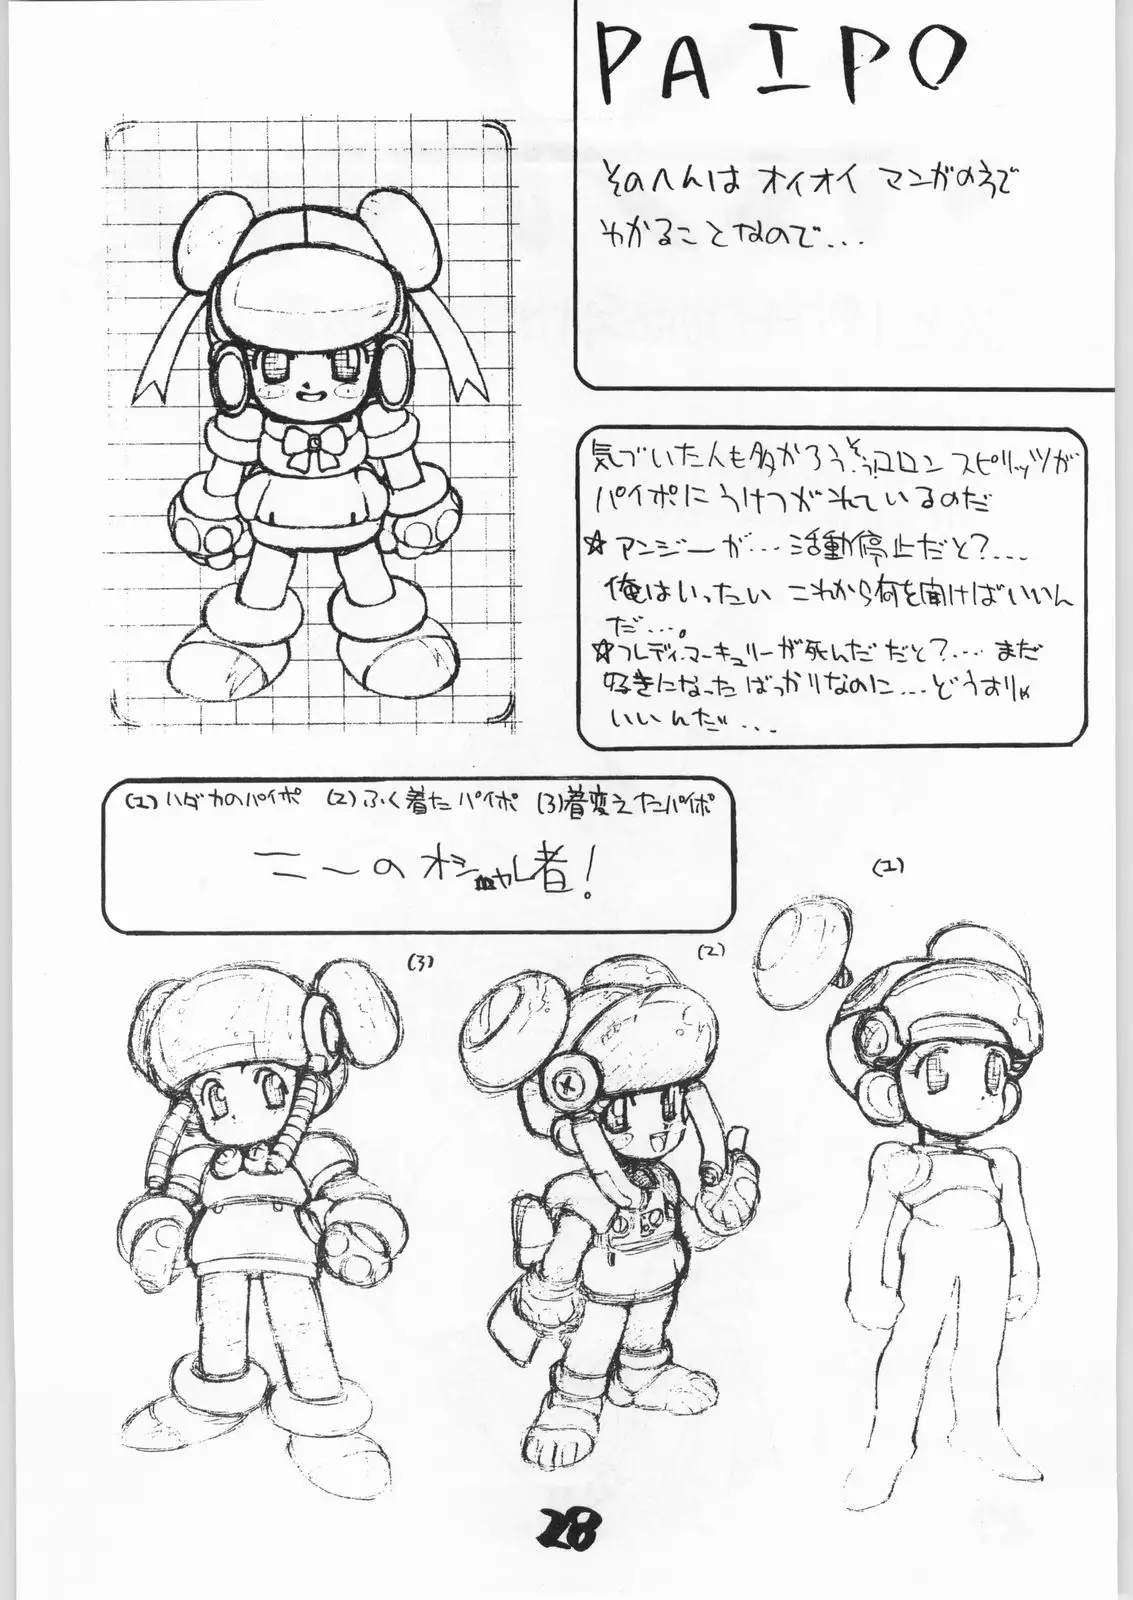 PAIPO
そのへんは オイオイ マンガの方で
わかることなので...
気づいた人も多かろう、そう!コロン スピリッツが
パイポに うけつがれているのだ
☆アンジーが... 活動停止だと?...
俺はいったい これから何を聞けばいいん
だ....。
☆フレディ・マーキュリーが死んだ だと?.... まだ
好きになったばっかりなのに... どうすりゃ
いいんだ...
(1)ハダカのパイポ (2)ふく着た パイポ (3)着変えたパイポ
ニーのオシャレ者!
(1)
(2)
(3)
28